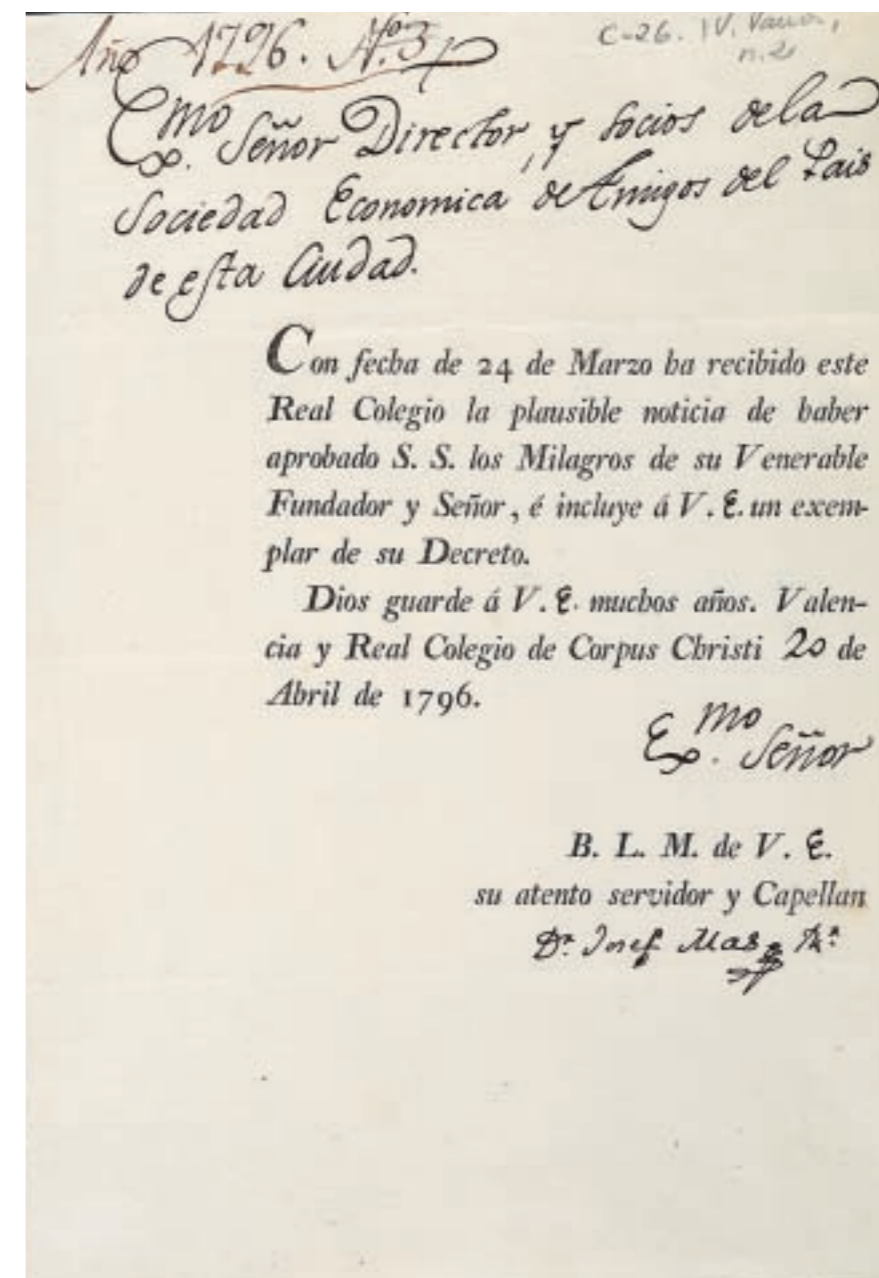 Año 1796. Nº. 3
C-26. IV. Varios,
n. 2
Exmo. Señor Director, y Socios de la
Sociedad Economica de Amigos del Pais
de esta Ciudad.
Con fecha de 24 de Marzo ha recibido este
Real Colegio la plausible noticia de haber
aprobado S. S. los Milagros de su Venerable
Fundador y Señor, é incluye á V. E. un exem-
plar de su Decreto.
Dios guarde á V. E. muchos años. Valen-
cia y Real Colegio de Corpus Christi 20 de
Abril de 1796.
Exmo. Señor
B. L. M. de V. E.
su atento servidor y Capellan
Dr. Josef Mas